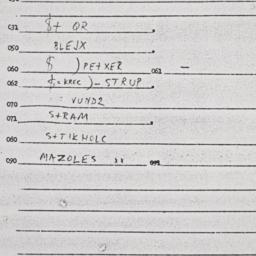 032 $+ OR
050 BLEJX
060 $ ) PE+XER 061 —
062 $=KREC ) - STRUP
070 : VUND2
071 S+RAM
080 S+TIKHOLC
090 MAZOLES ,, 091